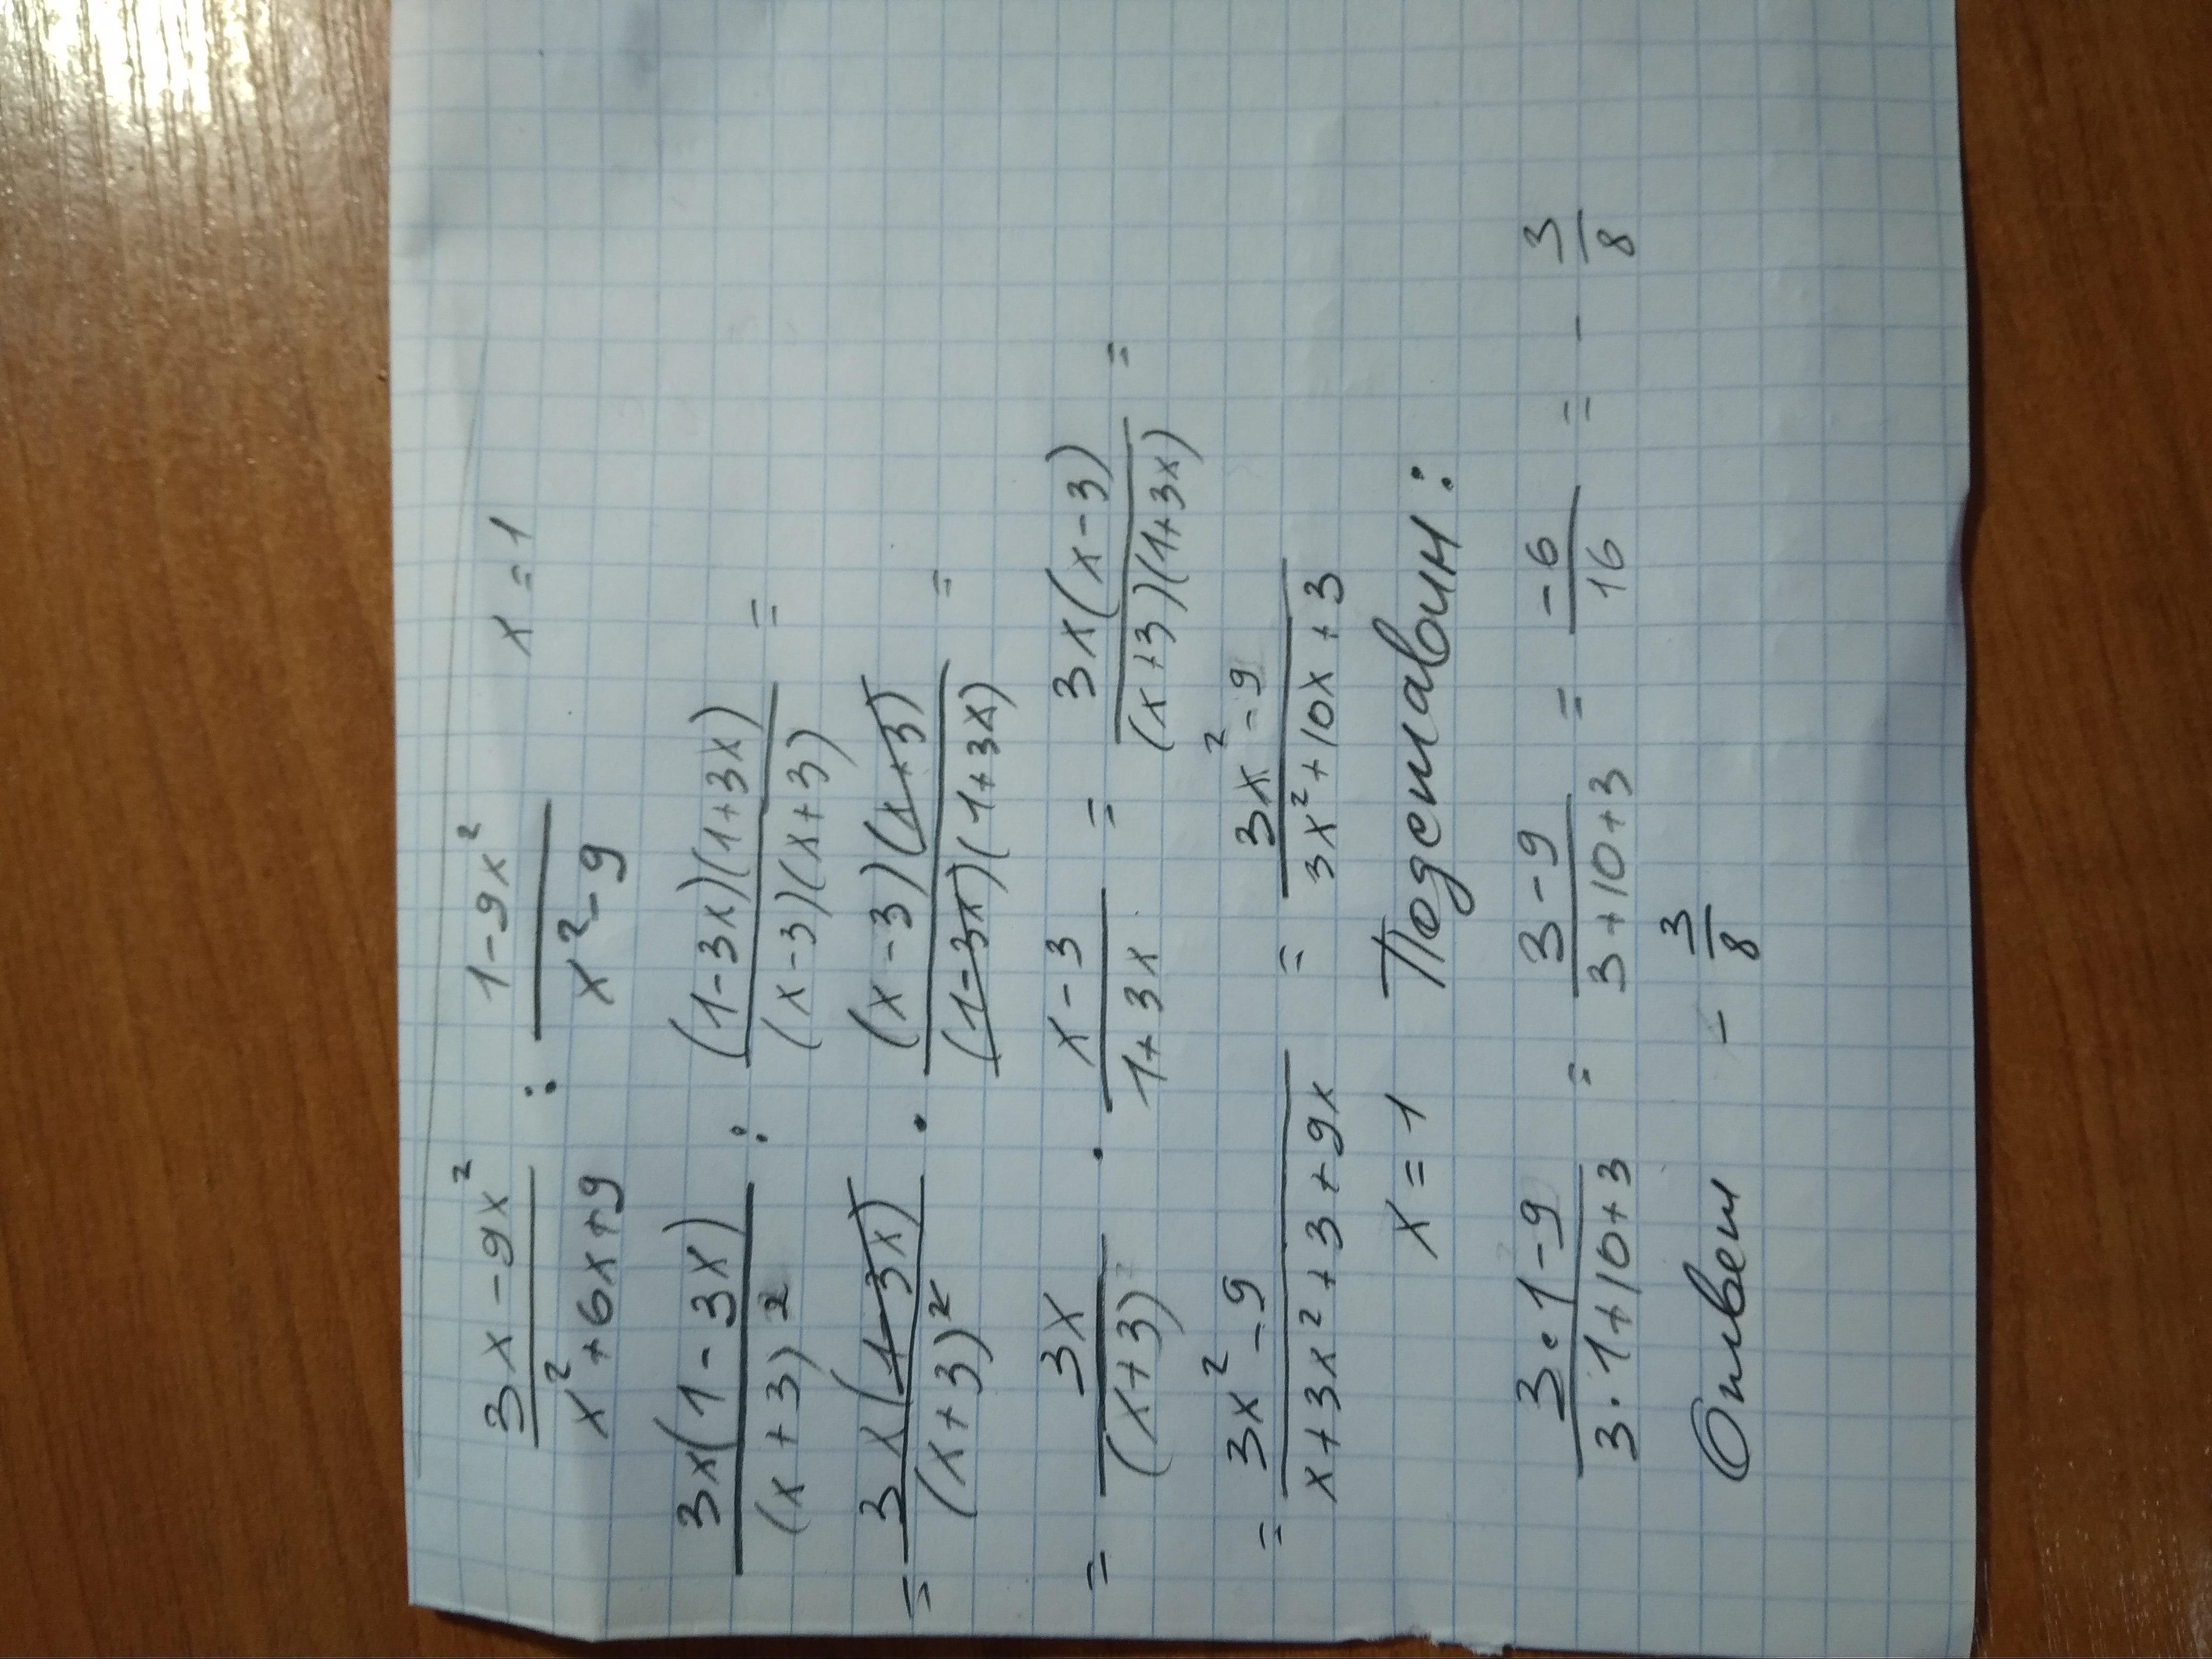 (3x - 9x²)/(x² + 6x + 9) : (1 - 9x²)/(x² - 9) x = 1
(3x(1 - 3x))/((x + 3)²) : ((1 - 3x)(1 + 3x))/((x - 3)(x + 3)) =
= (3x(1 - 3x))/((x + 3)²) · ((x - 3)(x + 3))/((1 - 3x)(1 + 3x)) =
= 3x/((x + 3)) · (x - 3)/(1 + 3x) = (3x(x - 3))/((x + 3)(1 + 3x)) =
= (3x² - 9)/(x + 3x² + 3 + 9x) = (3x² - 9)/(3x² + 10x + 3)
x = 1 Подставин:
(3·1 - 9)/(3·1 + 10 + 3) = (3 - 9)/(3 + 10 + 3) = (-6)/16 = - 3/8
Ответ - 3/8